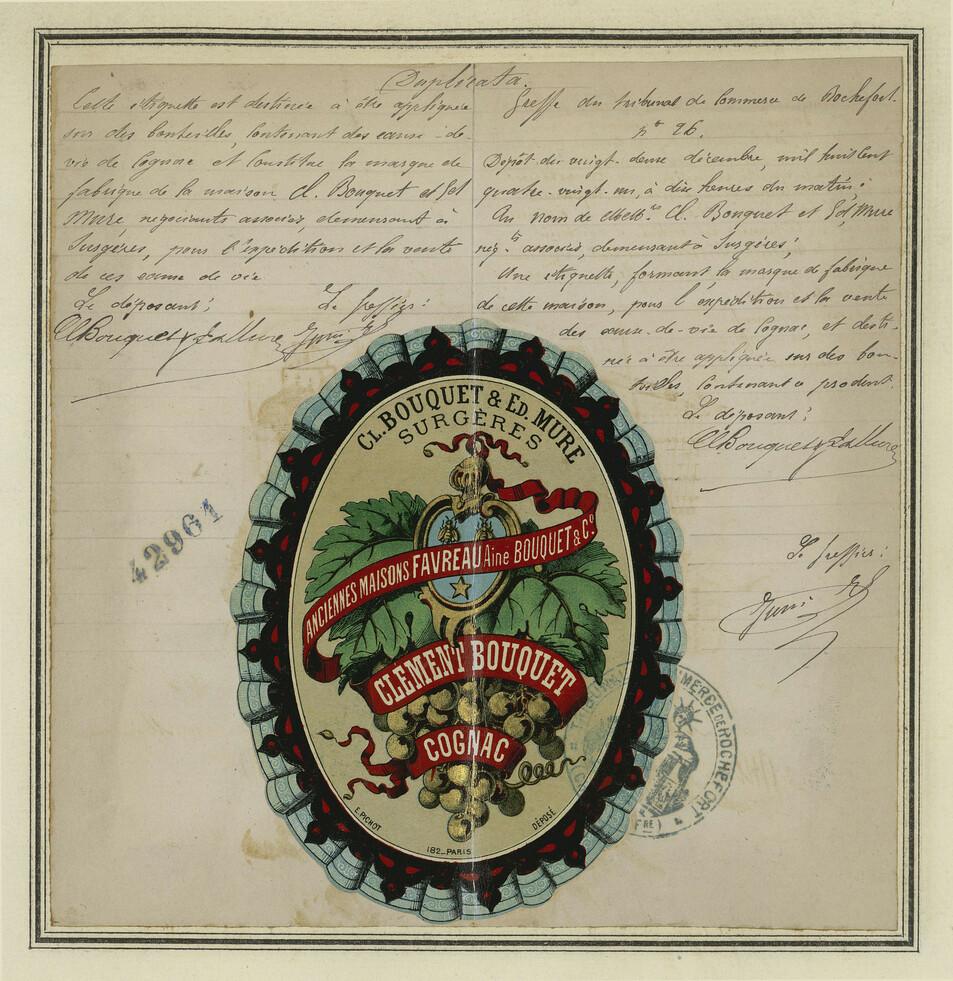 Duplicata.
Cette étiquette est destinée à être appliquée
sur des bouteilles, contenant des eaux-de-
vie de Cognac et constitue la marque de
fabrique de la maison Cl. Bouquet et Ed
Mure, négociants associés, demeurant à
Surgères, pour l'expédition et la vente
de ces eaux de vie
Le déposant:
Le greffier:
Cl Bouquet & Ed Mure
Greffe du tribunal de Commerce de Rochefort.
No 26.
Dépôt du vingt-deux décembre, mil huit cent
quatre-vingt-un, à dix heures du matin;
Au nom de MM. Cl. Bouquet et Ed. Mure
négts associés, demeurant à Surgères;
Une étiquette, formant la marque de fabrique
de cette maison, pour l'expédition et la vente
des eaux-de-vie de Cognac, et desti-
née à être appliquée sur des bou-
teilles, contenant ce produit.
Le déposant:
Cl Bouquet & Ed Mure
Le greffier:
42961
CL. BOUQUET & ED. MURE
SURGÈRES
ANCIENNES MAISONS FAVREAU Aîné BOUQUET & Co
CLÉMENT BOUQUET
COGNAC
E. PICHOT
DÉPOSÉ
182_PARIS
COMMERCE DE ROCHEFORT